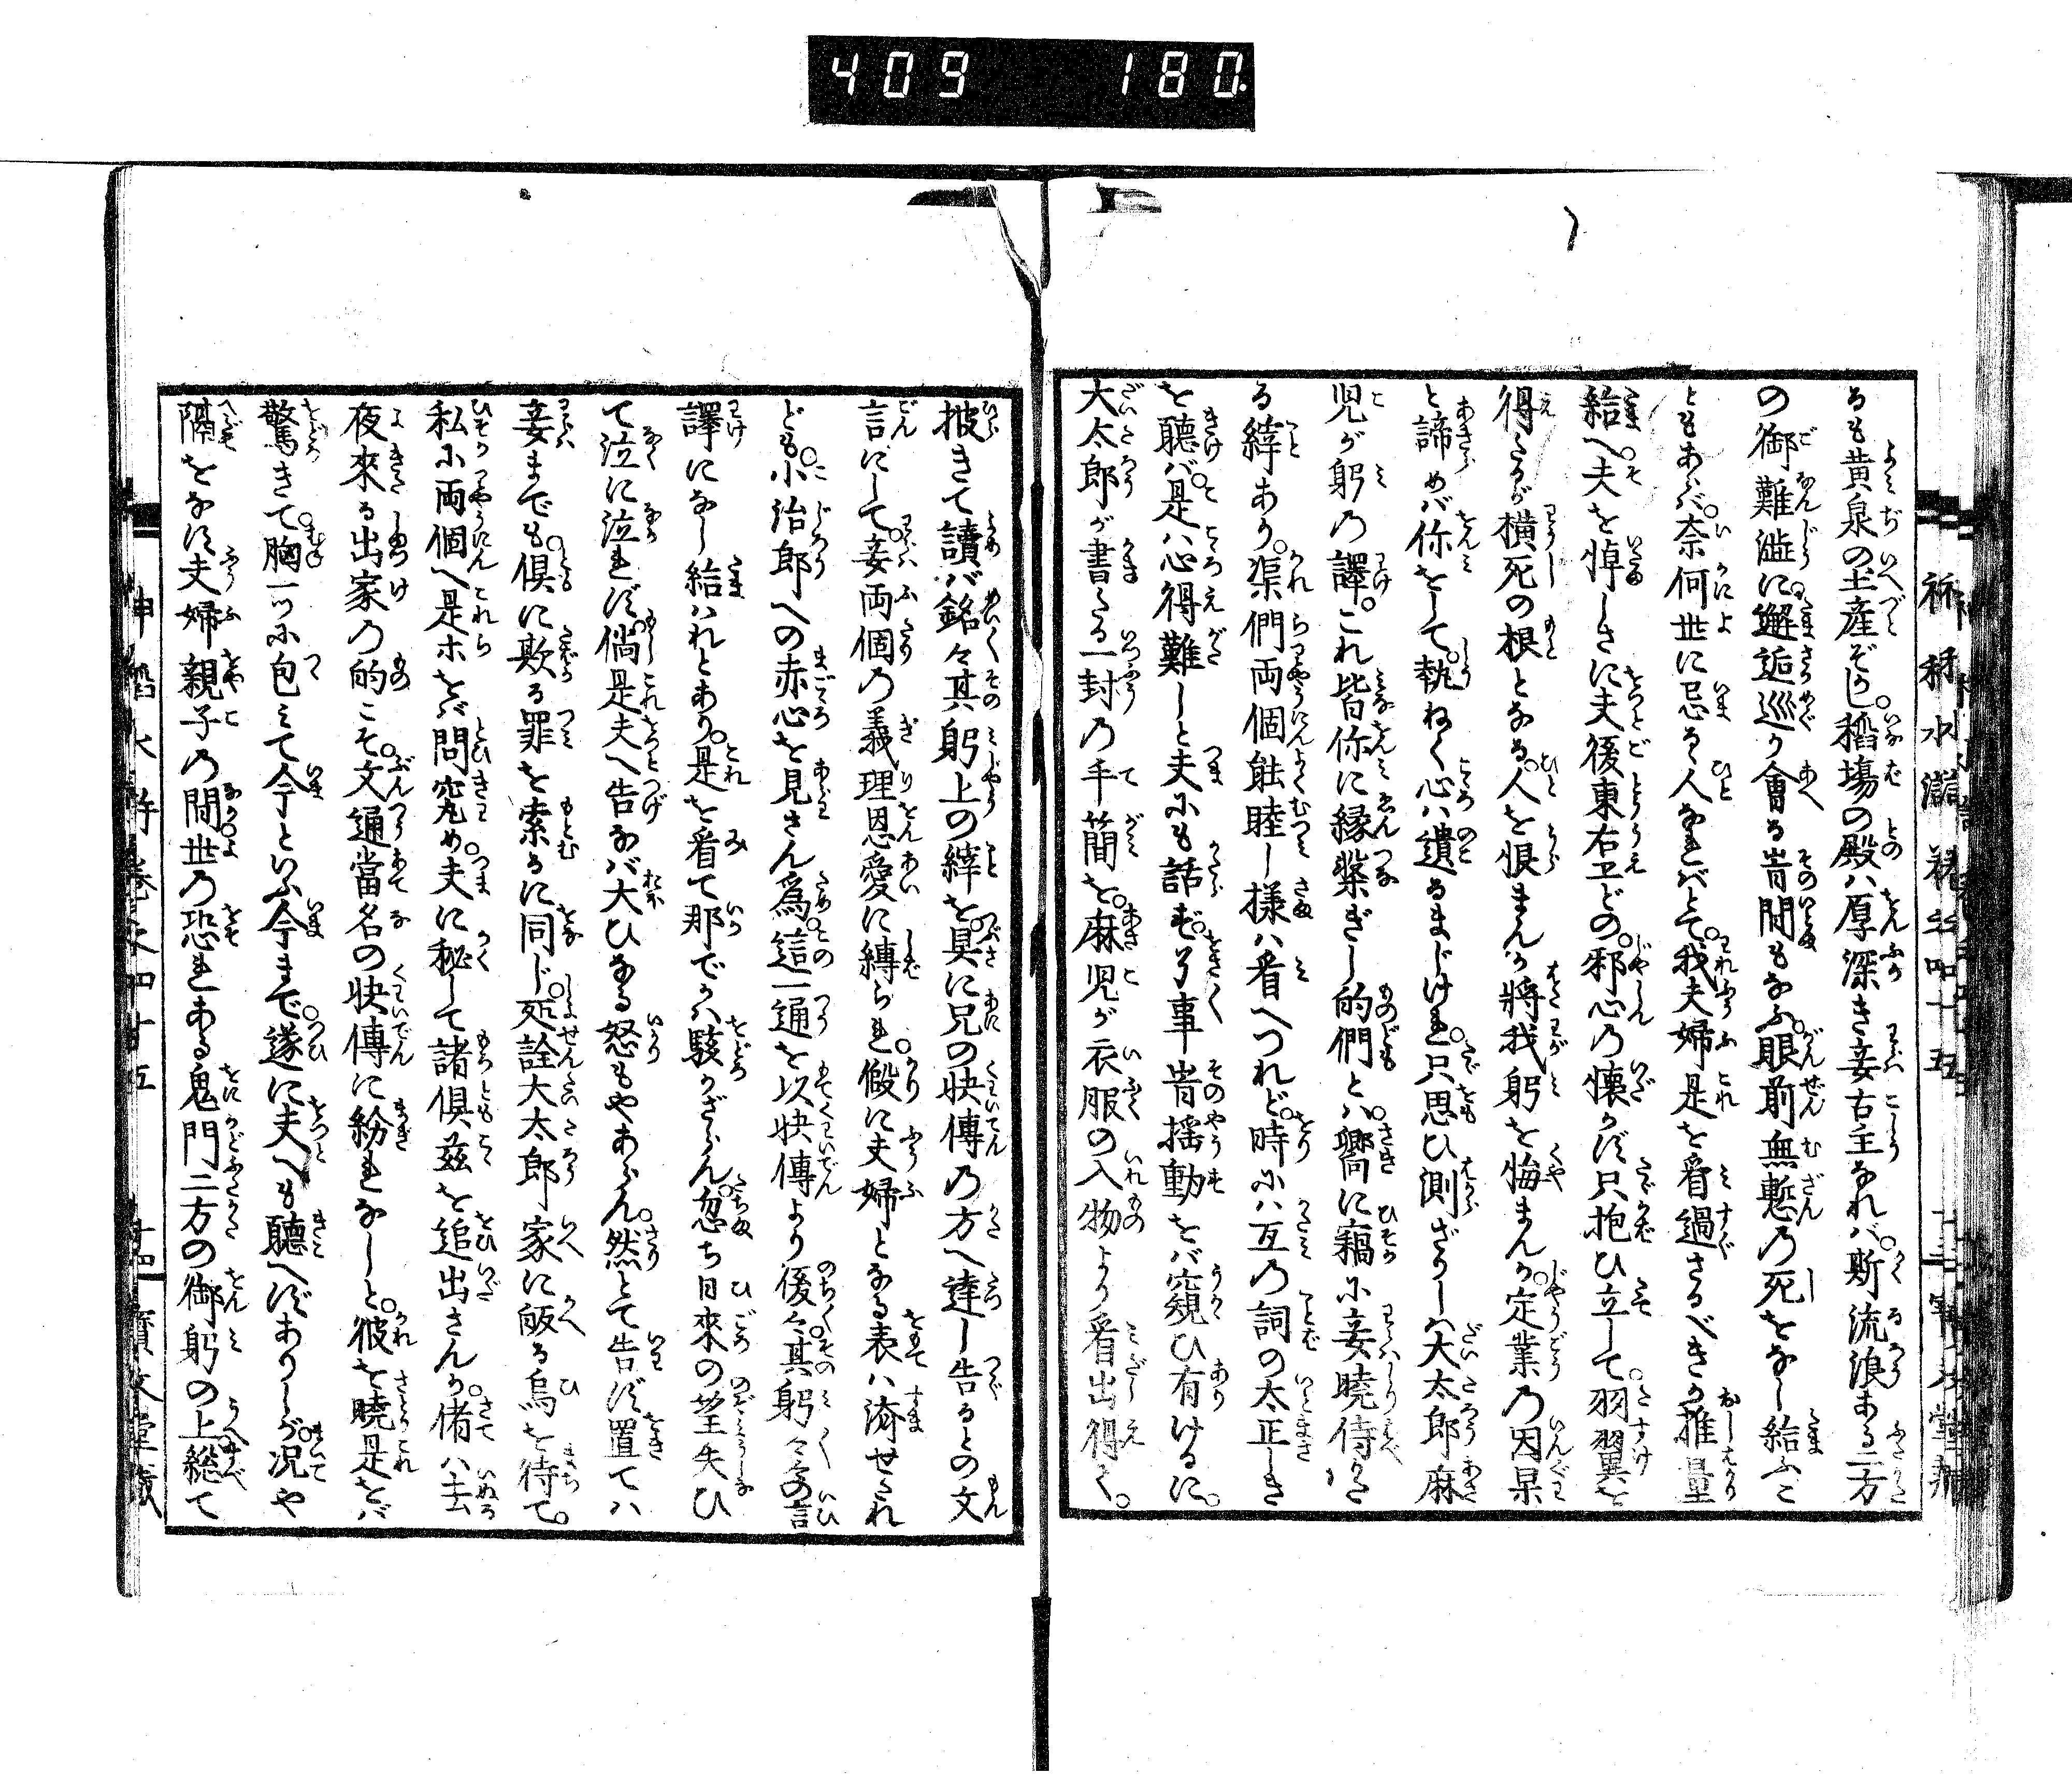 409 180
るも黄泉の土産ぞかし。稻塲の殿ハ厚深き妾古主なれバ。斯流浪ある二方
の御難澁に。邂逅巡り會る甞間もなふ。眼前無慙の死をなし給ふこ
ともあらバ。奈何世に忌る人なれバとて。我夫婦是を看過さるべきか。推量
給へ。夫を悼しさに夫後東右卫どの。邪心の懐かず只抱ひ立して。羽翼を
得たるが横死の根となる。人を恨まんか將我躬を悔まんか。定業の因果
と諦めバ你をして。執ねく心ハ遺るまじけれ。只思ひ測ざりしハ大太郎麻
児が躬の譯。これ皆你に縁繋ぎし的們とハ。嚮に竊に妾曉侍りき
る縡あり。渠們両個能睦し様ハ看へつれど。時にハ互の詞の太正しき
を聽バ。是ハ心得難しと夫にも話ず。了事甞揺動をバ窺ひ有けるに。
大太郎が書たる一封の手簡を。麻児が衣服の入物より看出得て。
披きて讀バ銘々其躬上の縡を。具に兄の快傳の方へ達し告るとの文
言にして。妾両個の義理恩愛に縛られ。假に夫婦となる表ハ濟せされ
ども。小治郎への赤心を見さん爲。這一通を以快傳より後々其躬々々の言
譯になし給ハれとあり。是を看て那でか駭かざらん。忽ち日來の望失ひ
て泣に泣れず。倘是夫へ告なバ大ひなる怒もやあらん。然とて告ず置てハ
妾までも。倶に欺る罪を索るに同じ。所詮大太郎家に皈る烏を待て。
私に両個へ是ホをバ問究め。夫に秘して諸倶玆を追出さんか。偖ハ去
夜來る出家の的こそ。文通當名の快傳に紛れなしと。彼を曉是をバ
驚きて。胸一ツに包ミて今といふ今まで。遂に夫へも聽へずありしが。况や
隔をなす夫婦親子の間世の恐れある鬼門二方の御躬の上総て
神稻水滸 巻之四十五 十四 寶文堂藏